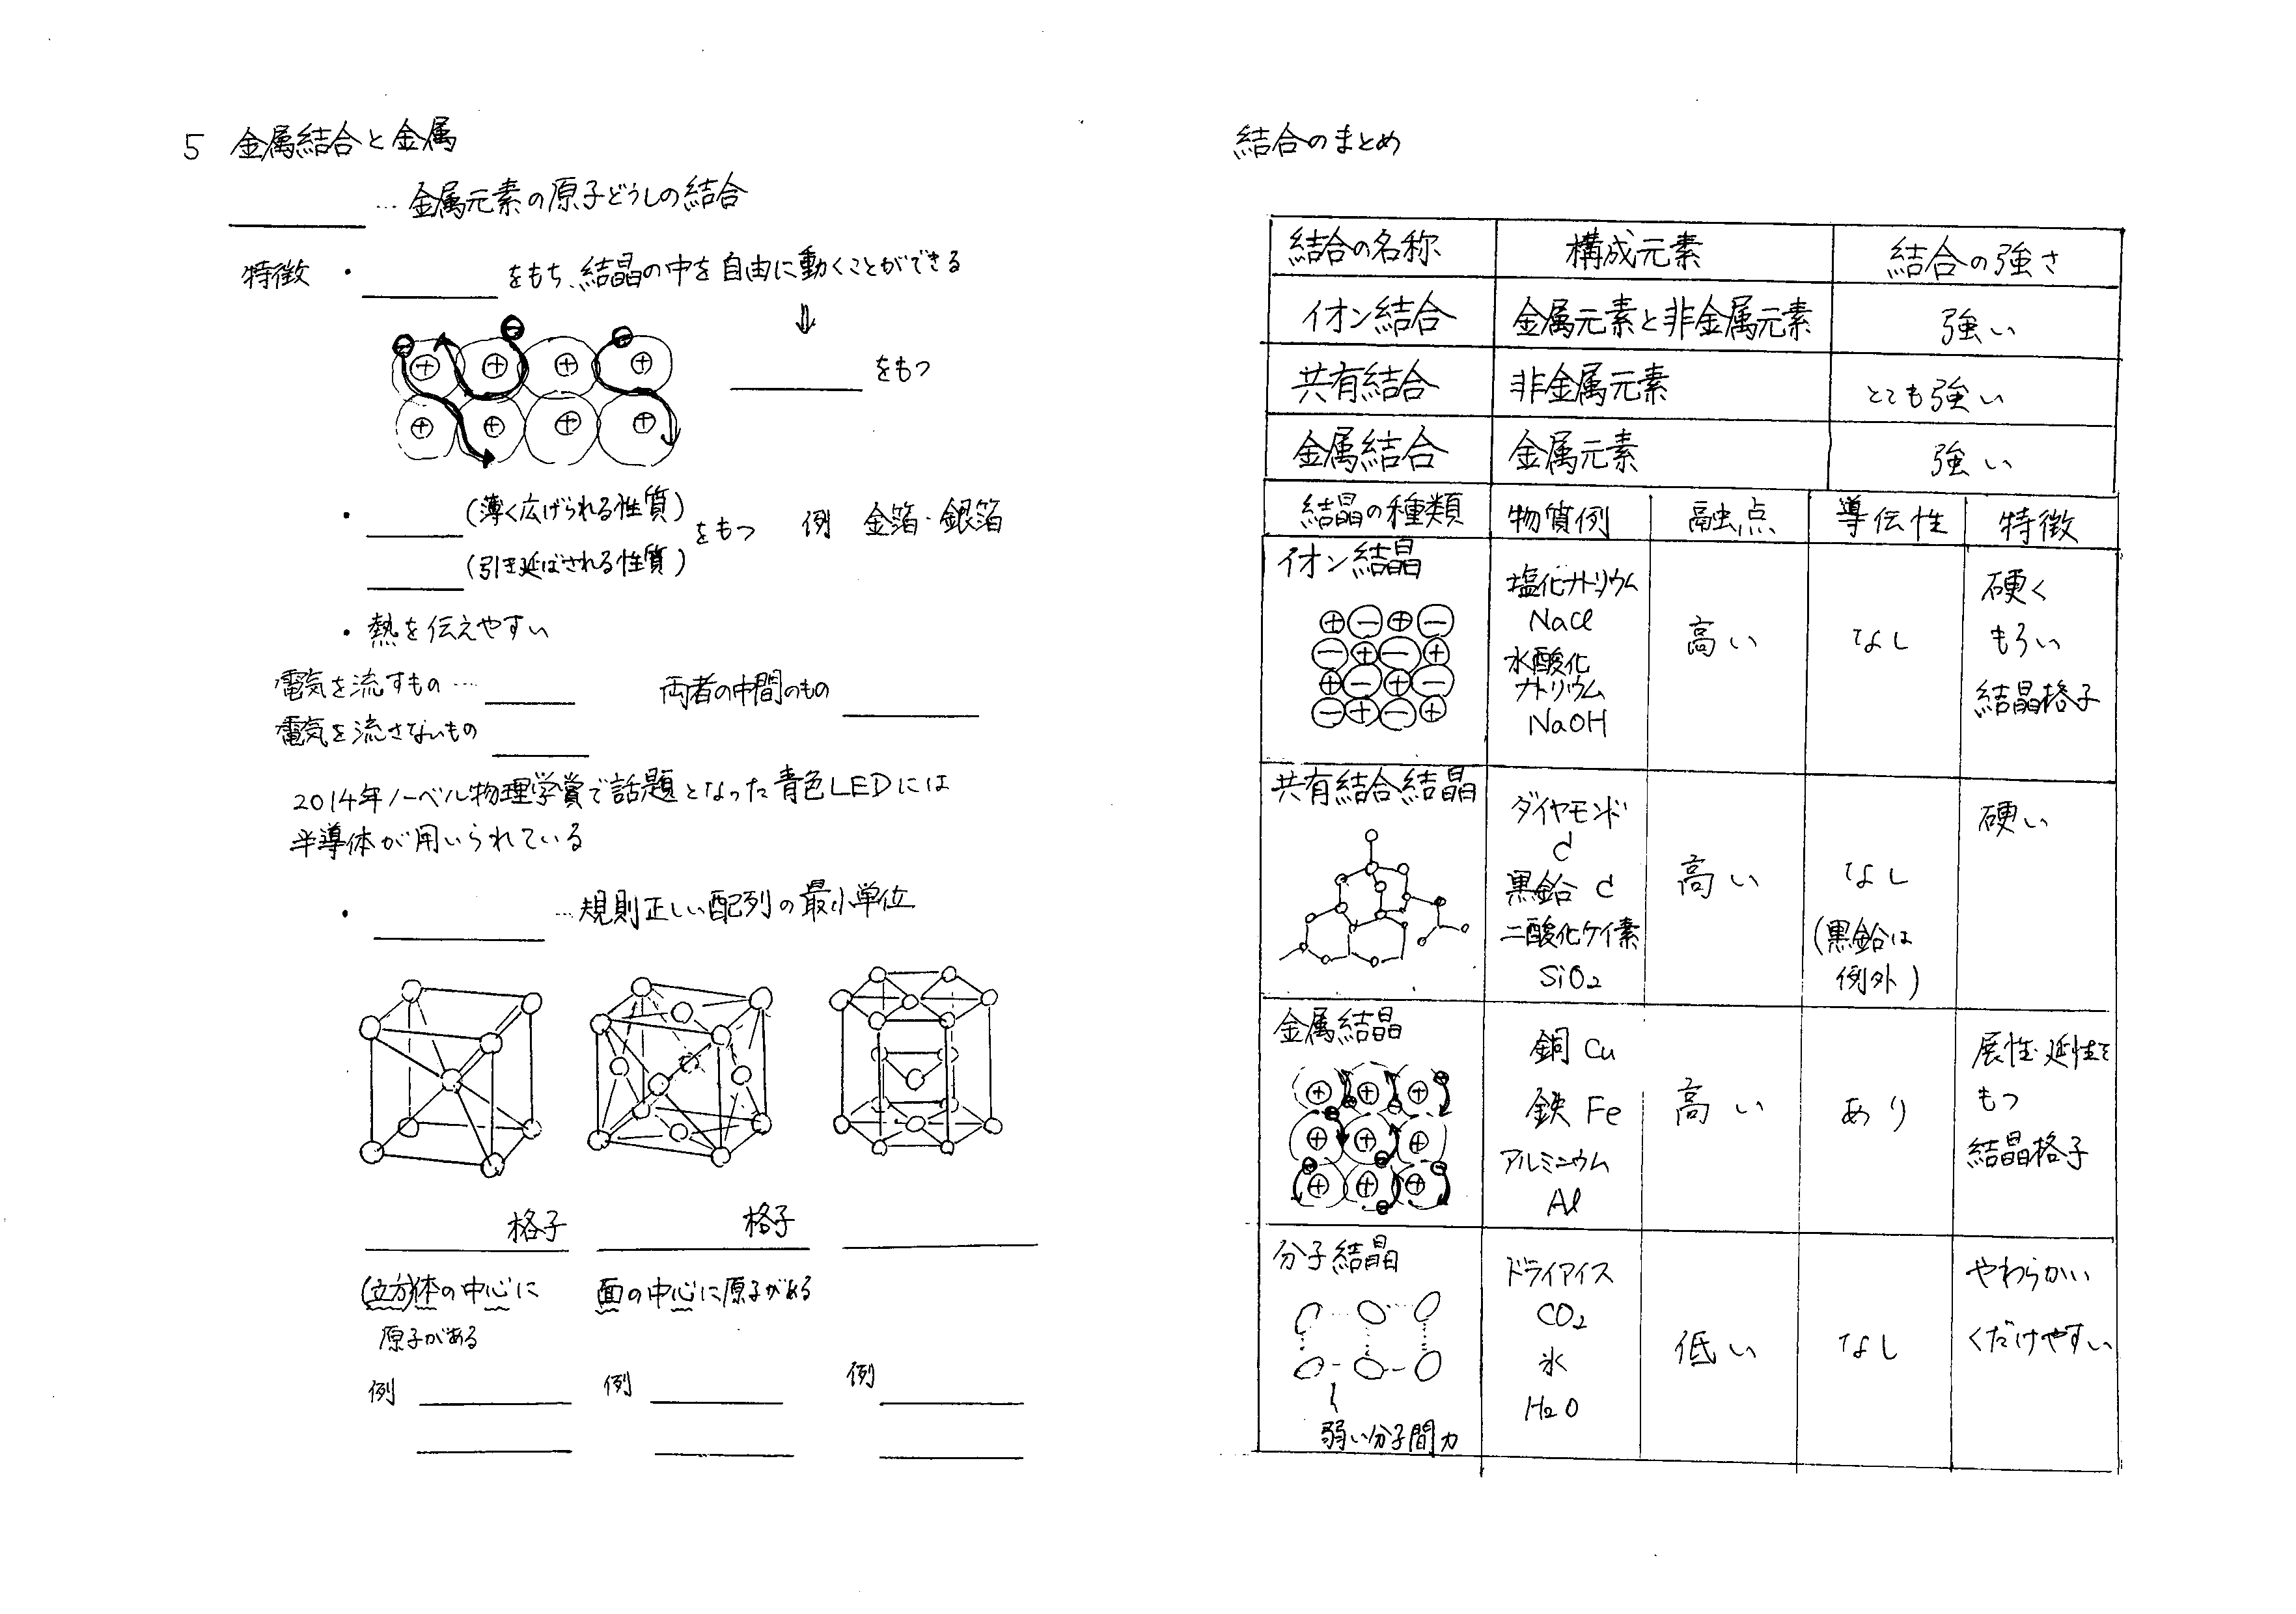 5 金属結合と金属
… 金属元素の原子どうしの結合
特徴 ・ をもち、結晶の中を自由に動くことができる
⇓
をもつ
・ (薄く広げられる性質)
をもつ 例 金箔・銀箔
(引き延ばされる性質)
・熱を伝えやすい
電気を流すもの … 両者の中間のもの
電気を流さないもの
2014年ノーベル物理学賞で話題となった青色LEDには
半導体が用いられている
・ …規則正しい配列の最小単位
格子 格子
(立方)体の中心に
原子がある
面の中心に原子がある
例 例 例
結合のまとめ
結合の名称 構成元素 結合の強さ
イオン結合 金属元素と非金属元素 強い
共有結合 非金属元素 とても強い
金属結合 金属元素 強い
結晶の種類 物質例 融点 導伝性 特徴
イオン結晶
塩化ナトリウム
NaCl
水酸化
ナトリウム
NaOH
高い
なし
硬く
もろい
結晶格子
共有結合結晶
ダイヤモンド
C
黒鉛 C
二酸化ケイ素
SiO₂
高い
なし
(黒鉛は
例外)
硬い
金属結晶
銅 Cu
鉄 Fe
アルミニウム
Al
高い
あり
展性・延性を
もつ
結晶格子
分子結晶
弱い分子間力
ドライアイス
CO₂
氷
H₂O
低い
なし
やわらかい
くだけやすい